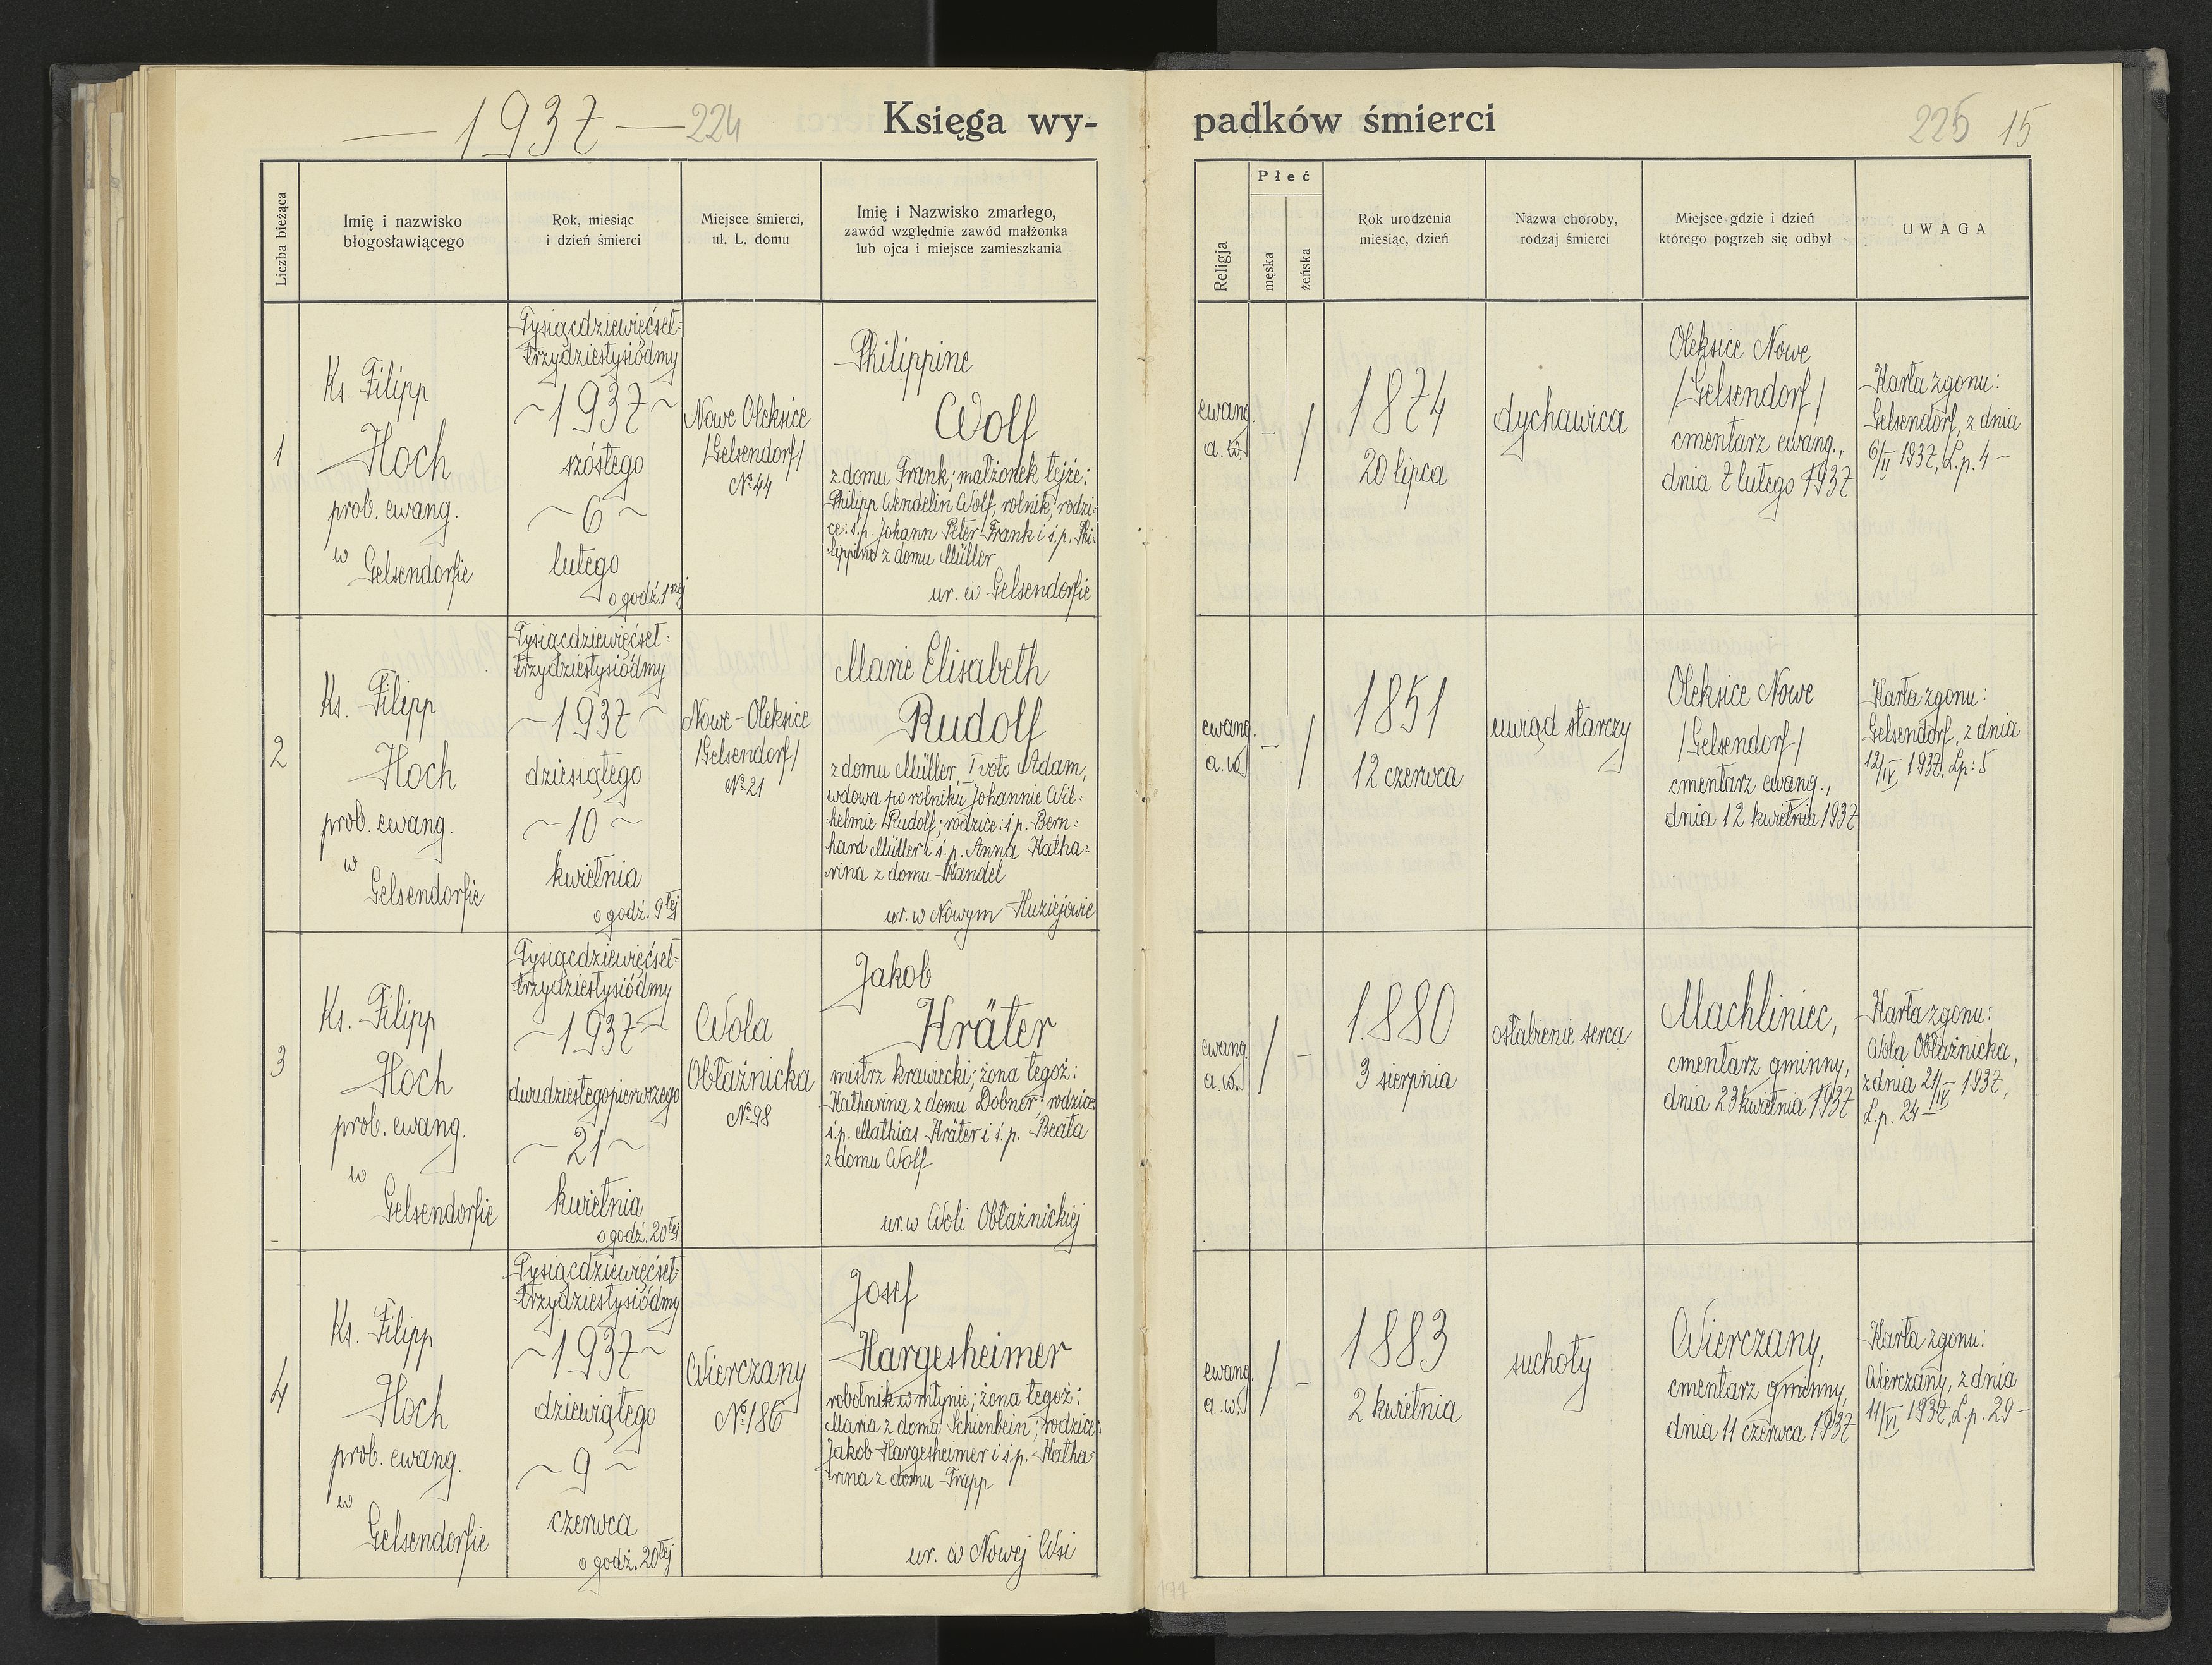 — 1937 — 224
Księga wy-
padków śmierci
225 15
Liczba bieżąca
Imię i nazwisko
błogosławiącego
Rok, miesiąc
i dzień śmierci
Miejsce śmierci,
uł. L. domu
Imię i Nazwisko zmarłego,
zawód względnie zawód małżonka
lub ojca i miejsce zamieszkania
Religja
Płeć
męska
żeńska
Rok urodzenia
miesiąc, dzień
Nazwa choroby,
rodzaj śmierci
Miejsce gdzie i dzień
którego pogrzeb się odbył
UWAGA
1
Ks. Filipp
Hoch
prob. ewang.
w
Gelsendorfie
Tysiącdziewięćset-
trzydziestysiódmy
~ 1937 ~
szóstego
~ 6 ~
lutego
o godz. 1szej
Nowe Oleksice
/Gelsendorf/
№ 44
Philippine
Wolf
z domu Frank; małżonek tejże:
Philipp Wendelin Wolf, rolnik; rodzi-
ce: ś.p. Johann Peter Frank i ś.p. Phi-
lippine z domu Müller
ur. w Gelsendorfie
ewang.
a. w.
–
/
1874
20 lipca
dychawica
Oleksice Nowe
/Gelsendorf/
cmentarz ewang.,
dnia 7 lutego 1937
Karta zgonu:
Gelsendorf, z dnia
6/II 1937, L.p. 4 –
2
Ks. Filipp
Hoch
prob. ewang.
w
Gelsendorfie
Tysiącdziewięćset-
trzydziestysiódmy
~ 1937 ~
dziesiątego
~ 10 ~
kwietnia
o godz. 9tej
Nowe-Oleksice
/Gelsendorf/
№ 21
Marie Elisabeth
Rudolf
z domu Müller, I voto Adam,
wdowa po rolniku Johannie Wil-
helmie Rudolf; rodzice: ś.p. Bern-
hard Müller i ś.p. Anna Katha-
rina z domu Kandel
ur. w Nowym Huziejowie
ewang.
a. w.
–
/
1851
12 czerwca
uwiąd starczy
Oleksice Nowe
/Gelsendorf/
cmentarz ewang.,
dnia 12 kwietnia 1937
Karta zgonu:
Gelsendorf, z dnia
12/IV 1937, Lp: 5
3
Ks. Filipp
Hoch
prob. ewang.
w
Gelsendorfie
Tysiącdziewięćset-
trzydziestysiódmy
~ 1937 ~
dwudziestegopierwszego
~ 21 ~
kwietnia
o godz. 20tej
Wola
Obłaźnicka
№ 98
Jakob
Kräter
mistrz krawiecki; żona tegoż:
Katharina z domu Dobner; rodzice
ś.p. Mathias Kräter i ś.p. Beata
z domu Wolf
ur. w Woli Obłaźnickiej
ewang.
a. w.
/
–
1880
3 sierpnia
osłabienie serca
Machliniec,
cmentarz gminny,
dnia 23 kwietnia 1937
Karta zgonu:
Wola Obłaźnicka,
z dnia 21/IV 1937,
L.p. 24 –
4
Ks. Filipp
Hoch
prob. ewang.
w
Gelsendorfie
Tysiącdziewięćset-
trzydziestysiódmy
~ 1937 ~
dziewiątego
~ 9 ~
czerwca
o godz. 20tej
Wierczany
№ 186
Josef
Hargesheimer
robotnik w młynie; żona tegoż:
Maria z domu Schienbein; rodzice:
Jakob Hargesheimer i ś.p. Katha-
rina z domu Trapp
ur. w Nowej Wsi
ewang.
a. w.
/
–
1883
2 kwietnia
suchoty
Wierczany,
cmentarz gminny,
dnia 11 czerwca 1937
Karta zgonu:
Wierczany, z dnia
11/VI 1937, L.p. 29 –
177